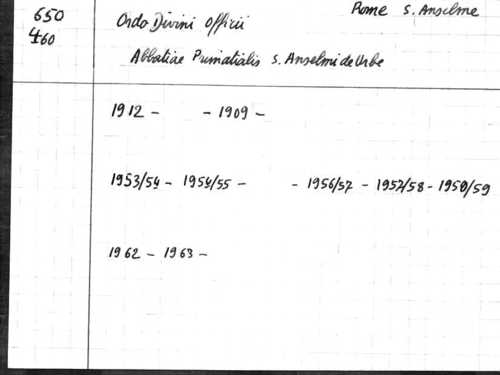 650
460
Rome S. Anselme
Ordo Divini Officii
Abbatiae Primatialis S. Anselmi de Urbe
1912 - - 1909 -
1953/54 - 1954/55 - - 1956/57 - 1957/58 - 1958/59
1962 - 1963 -